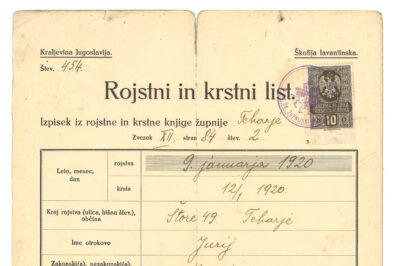 Kraljevina Jugoslavija.
Škofija lavantinska.
Štev. 454.
Rojstni in krstni list.
10
Izpisek iz rojstne in krstne knjige župnije Teharje
Zvezek XII, stran 84 štev. 2
Leto, mesec, dan
rojstva 9. januarja 1920
krsta 12/1 1920.
Kraj rojstva (ulica, hišna štev.), občina
Štore 49 Teharje
Ime otrokovo
Jurij
Zakonski(a), nezakonski(a),